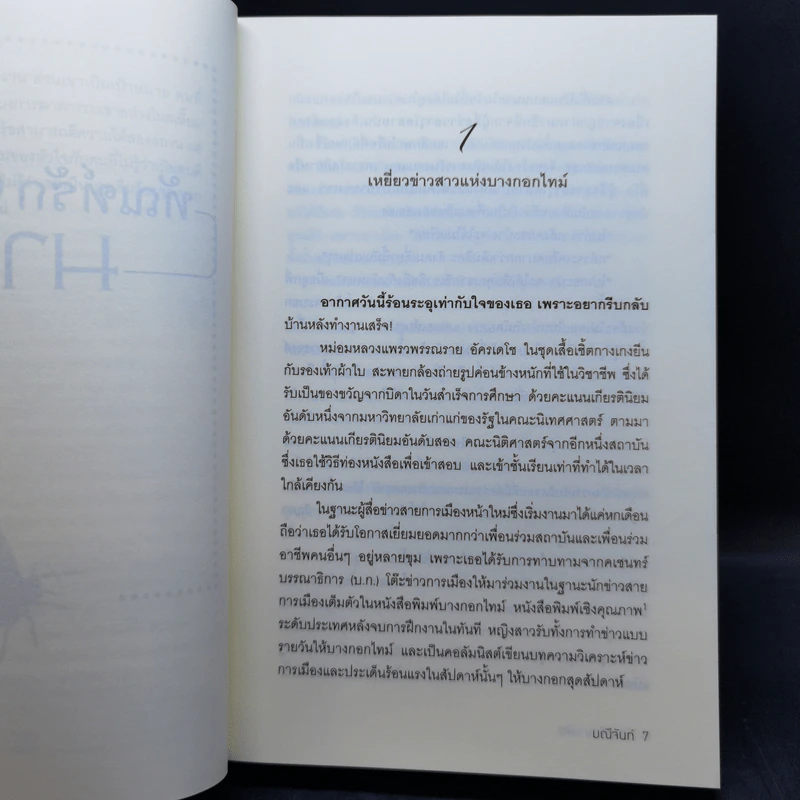 ทัณฑ์รัก
มา
1
เหยี่ยวข่าวสาวแห่งบางกอกไทม์
อากาศวันนี้ร้อนระอุเท่ากับใจของเธอ เพราะอยากรีบกลับ
บ้านหลังทำงานเสร็จ!
หม่อมหลวงแพรวพรรณราย อัครเดโช ในชุดเสื้อเชิ้ตกางเกงยีน
กับรองเท้าผ้าใบ สะพายกล้องถ่ายรูปค่อนข้างหนักที่ใช้ในวิชาชีพ ซึ่งได้
รับเป็นของขวัญจากบิดาในวันสำเร็จการศึกษา ด้วยคะแนนเกียรตินิยม
อันดับหนึ่งจากมหาวิทยาลัยเก่าแก่ของรัฐในคณะนิเทศศาสตร์ ตามมา
ด้วยคะแนนเกียรตินิยมอันดับสอง คณะนิติศาสตร์จากอีกหนึ่งสถาบัน
ซึ่งเธอใช้วิธีท่องหนังสือเพื่อเข้าสอบ และเข้าชั้นเรียนเท่าที่ทำได้ในเวลา
ใกล้เคียงกัน
ในฐานะผู้สื่อข่าวสายการเมืองหน้าใหม่ซึ่งเริ่มงานมาได้แค่หกเดือน
ถือว่าเธอได้รับโอกาสเยี่ยมยอดมากกว่าเพื่อนร่วมสถาบันและเพื่อนร่วม
อาชีพคนอื่นๆ อยู่หลายขุม เพราะเธอได้รับการทาบทามจากคเชนทร์
บรรณาธิการ (บ.ก.) โต๊ะข่าวการเมืองให้มาร่วมงานในฐานะนักข่าวสาย
การเมืองเต็มตัวในหนังสือพิมพ์บางกอกไทม์ หนังสือพิมพ์เชิงคุณภาพ¹
ระดับประเทศหลังจบการฝึกงานในทันที หญิงสาวรับทั้งการทำข่าวแบบ
รายวันให้บางกอกไทม์ และเป็นคอลัมนิสต์เขียนบทความวิเคราะห์ข่าว
การเมืองและประเด็นร้อนแรงในสัปดาห์นั้นๆ ให้บางกอกสุดสัปดาห์
มณีจันท์ 7